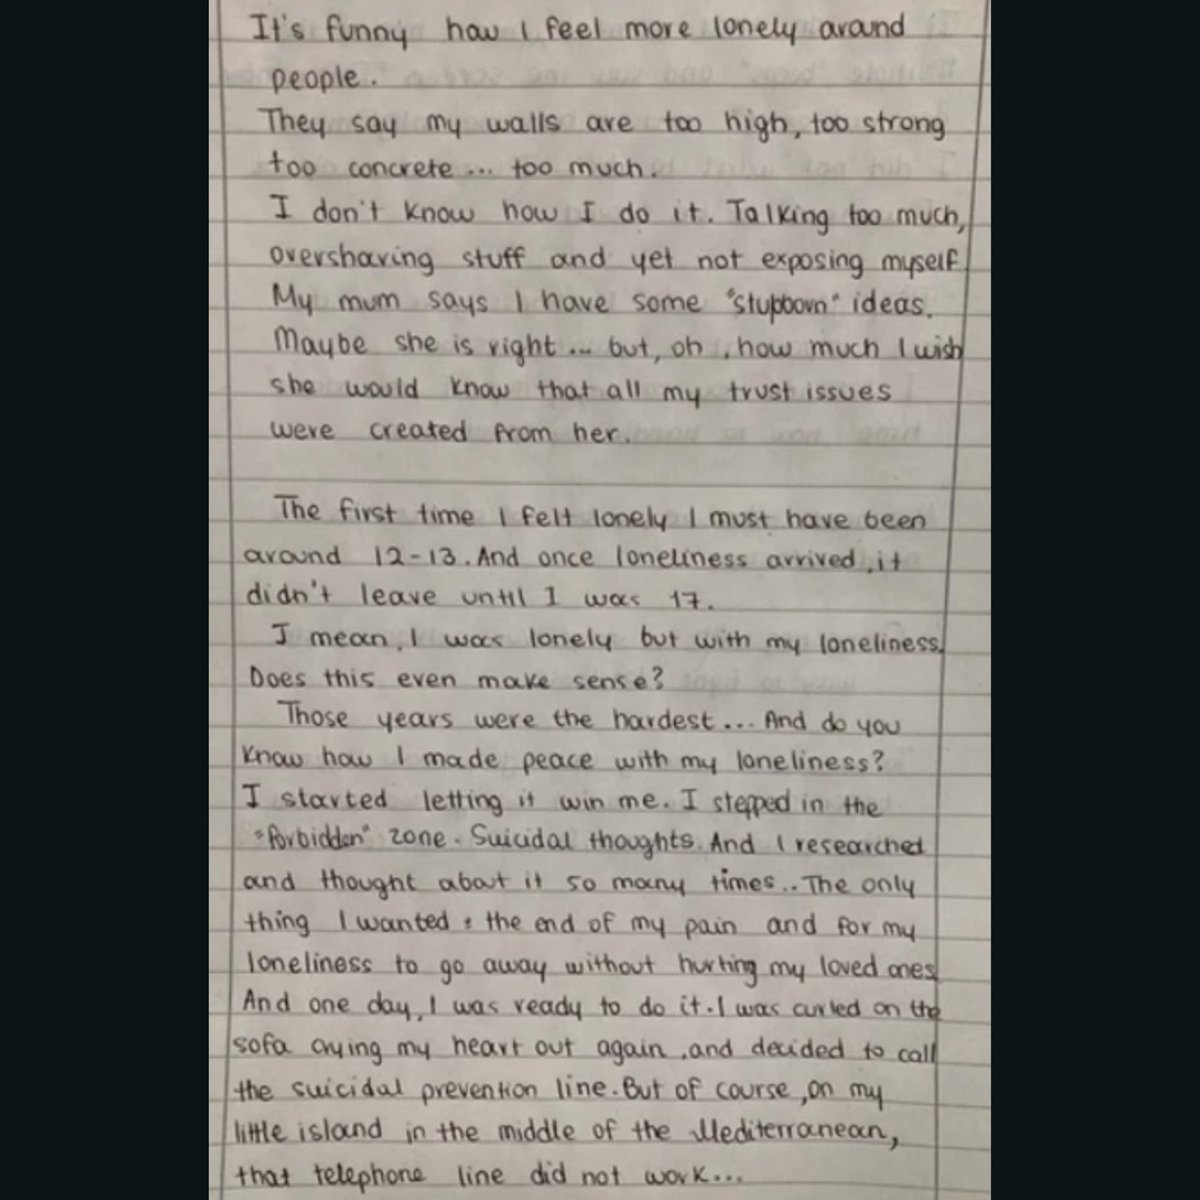 It's funny how I feel more lonely around
people.
They say my walls are too high, too strong
too concrete... too much.
I don't know how I do it. Talking too much,
oversharing stuff and yet not exposing myself.
My mum says I have some "stubborn" ideas.
Maybe she is right... but, oh, how much I wish
she would know that all my trust issues
were created from her.
The first time I felt lonely I must have been
around 12-13. And once loneliness arrived, it
didn't leave until I was 17.
I mean, I was lonely but with my loneliness.
Does this even make sense?
Those years were the hardest... And do you
know how I made peace with my loneliness?
I started letting it win me. I stepped in the
"forbidden" zone. Suicidal thoughts. And I researched
and thought about it so many times.. The only
thing I wanted : the end of my pain and for my
loneliness to go away without hurting my loved ones
And one day, I was ready to do it. I was curled on the
sofa crying my heart out again, and decided to call
the suicidal prevention line. But of course, on my
little island in the middle of the Mediterranean,
that telephone line did not work...